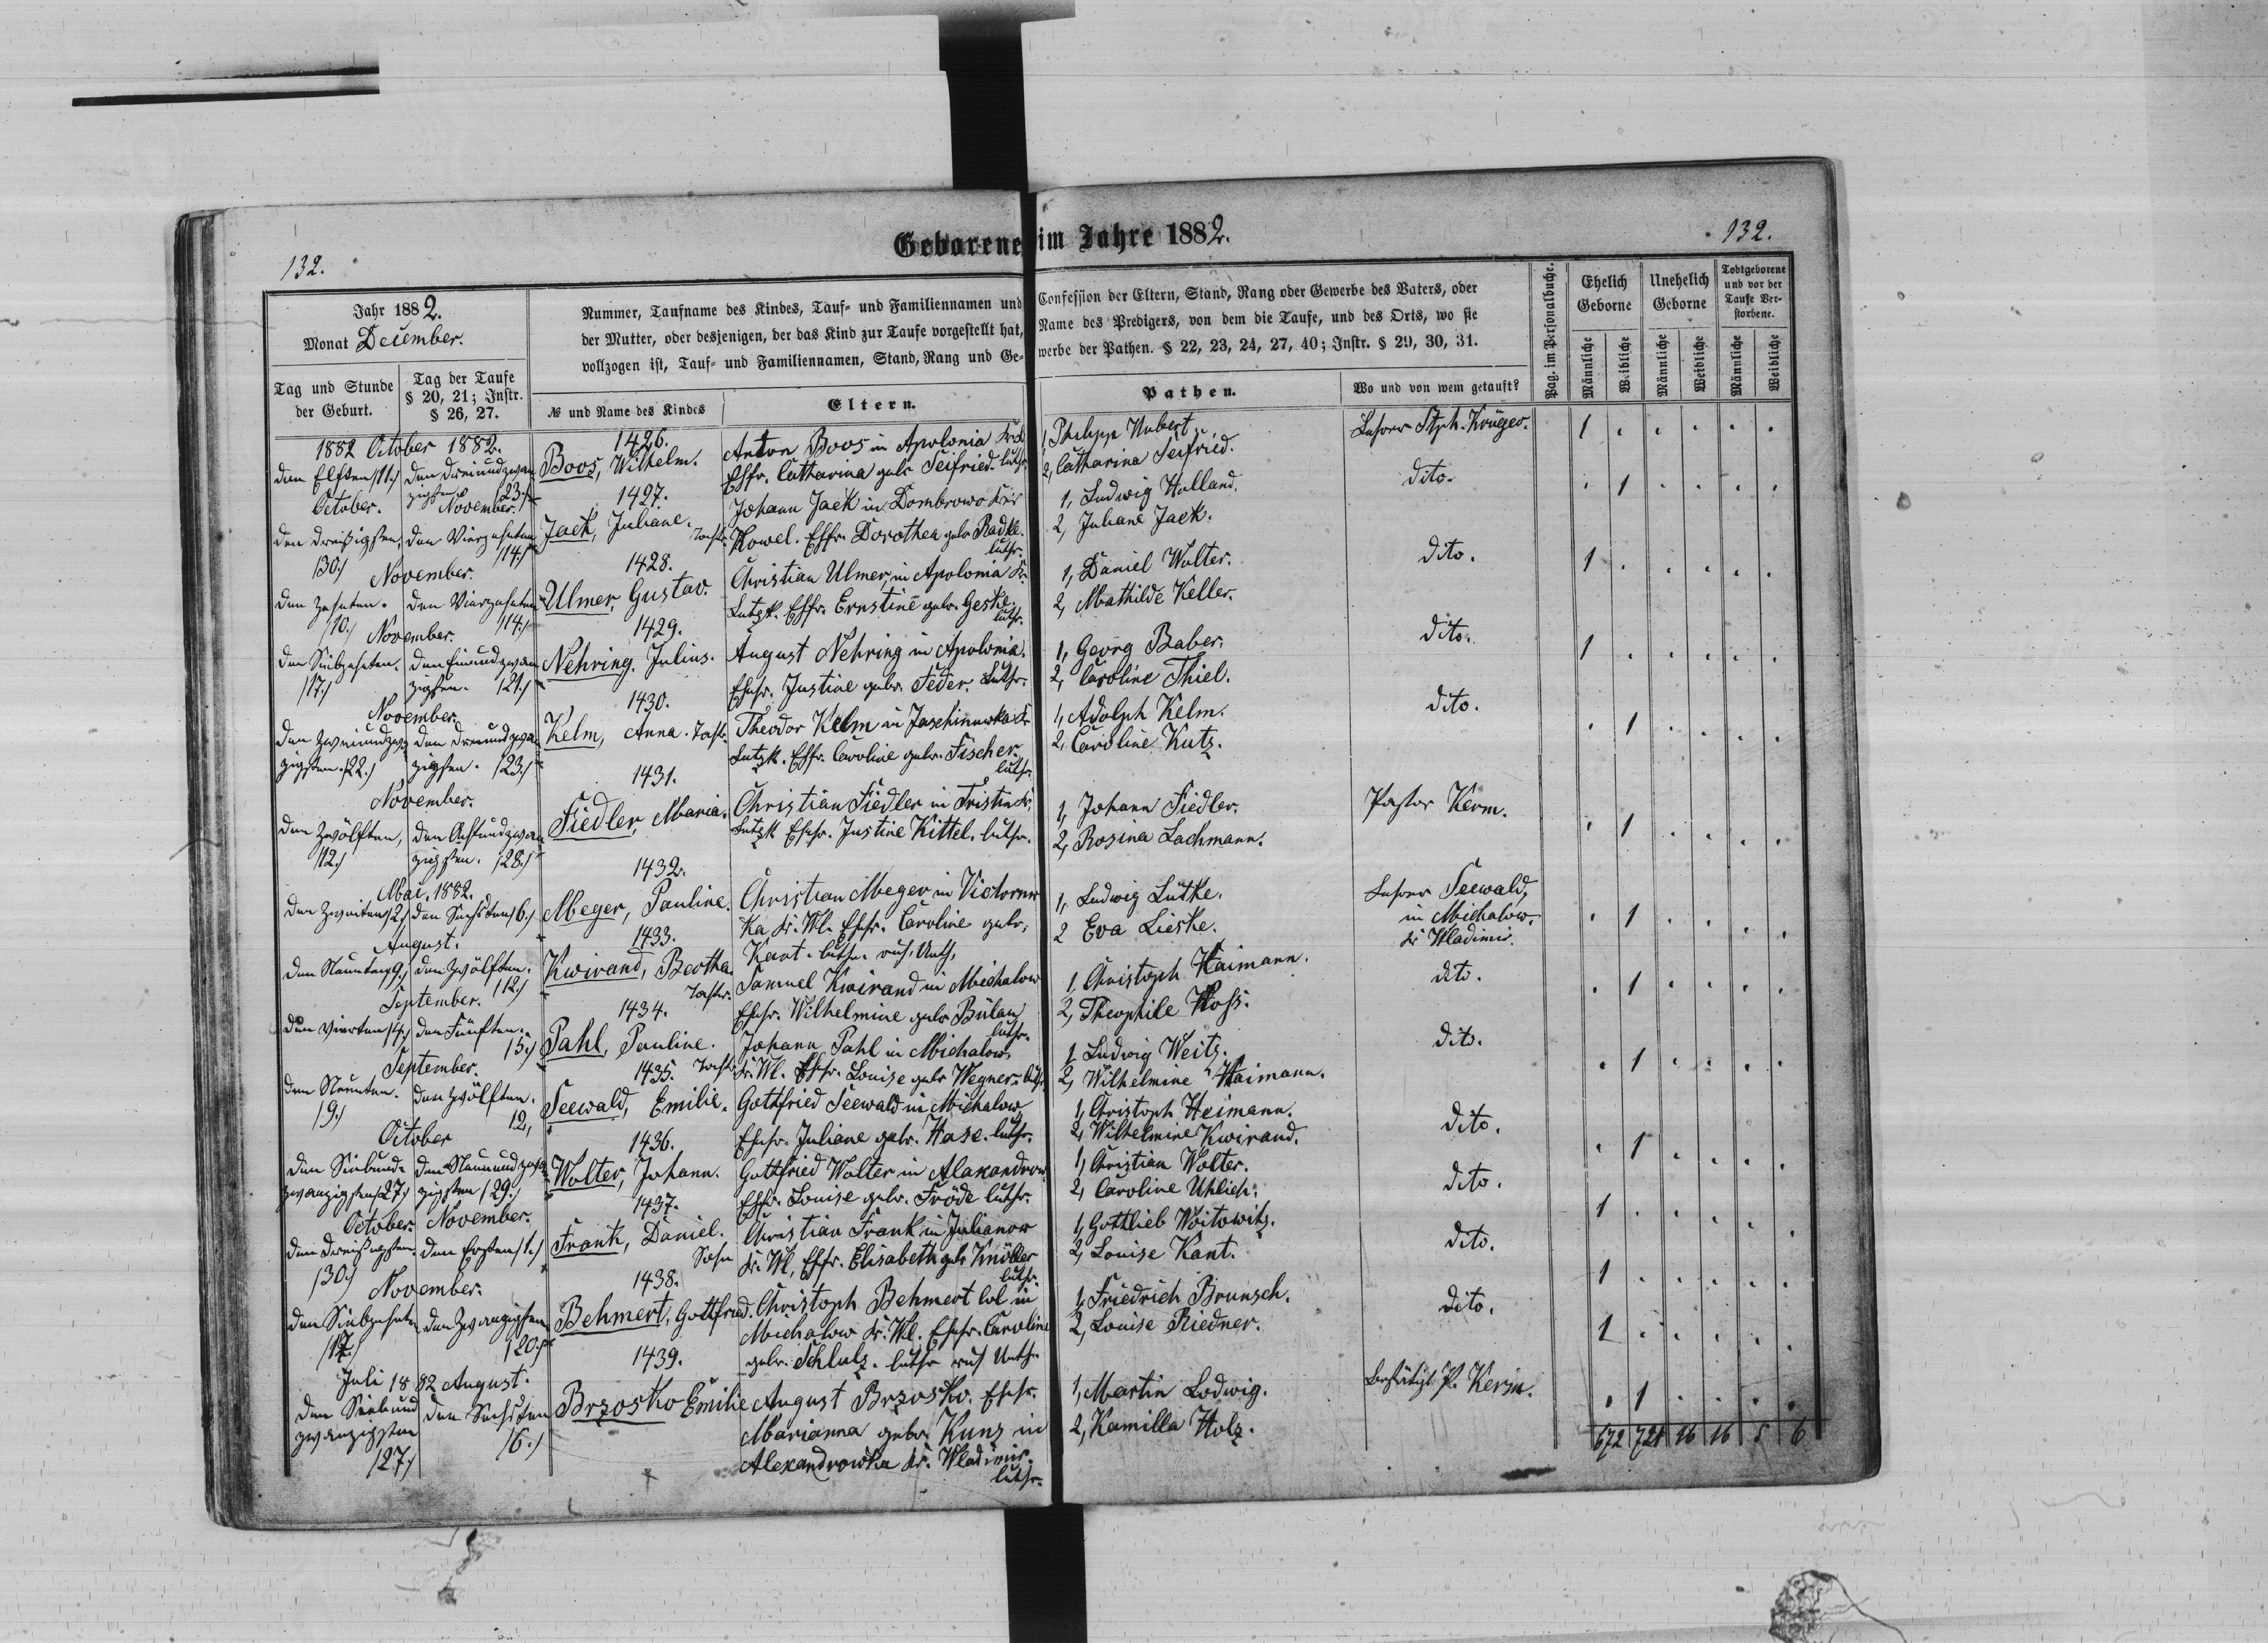 Geborene im Jahre 1882.
132.
132.
Jahr 1882.
Monat December.
Nummer, Taufname des Kindes, Tauf- und Familiennamen und
der Mutter, oder desjenigen, der das Kind zur Taufe vorgestellt hat,
vollzogen ist, Tauf- und Familiennamen, Stand, Rang und Ge-
Confession der Eltern, Stand, Rang oder Gewerbe des Vaters, oder
Name des Predigers, von dem die Taufe, und des Orts, wo sie
werbe der Pathen. § 22, 23, 24, 27, 40; Instr. § 29, 30, 31.
Pag. im Personalbuche.
Ehelich Geborne
Unehelich Geborne
Todtgeborene und vor der Taufe Verstorbene.
Männliche Weibliche Männliche Weibliche Männliche Weibliche
Tag und Stunde der Geburt.
Tag der Taufe § 20, 21; Instr. § 26, 27.
№ und Name des Kindes
Eltern.
Pathen.
Wo und von wem getauft?
1882 October 1882.
den Elften /11./ October.
den dreiundzwanzigsten /23./
1426.
Boos, Wilhelm.
Anton Boos in Apolonia
Ehfr. Catharina geb. Seifried. luth.
1, Philipp Hubert.
2, Catharina Seifried.
Lehrer Stph. Krüger.
1
November.
den dreißigsten, /30./
den Vierzehnten /14./
1427.
Jack, Juliane. Tocht.
Johann Jack in Dombrowo Kr.
Kowel. Ehfr. Dorothea geb. Radke.
luthr.
1, Ludwig Holland.
2, Juliane Jack.
dito.
1
November.
den Zehnten. /10./
den Vierzehnten /14./
1428.
Ulmer, Gustav.
Christian Ulmer, in Apolonia Kr.
Lutzk. Ehfr. Ernstine geb. Geske.
luthr.
1, Daniel Wolter.
2, Mathilde Keller.
dito.
1
November.
den Siebzehnten. /17./
den Einundzwanzigsten. /21./
1429.
Nehring, Julius.
August Nehring in Apolonia.
Ehefr. Justine geb. Feder. Luthr.
1, Georg Baber.
2, Caroline Thiel.
dito.
1
November.
den Zweiundzwanzigsten /22./
den dreiundzwanzigsten. /23./
1430.
Kelm, Anna. Tocht.
Theodor Kelm in Jaschinuwka Kr.
Lutzk. Ehfr. Caroline geb. Fischer.
luthr.
1, Adolph Kelm.
2, Caroline Kutz.
dito.
1
November.
den Zwölften, /12./
den Achtundzwanzigsten. /28./
1431.
Fiedler, Maria.
Christian Fiedler in Tristin Kr.
Lutzk Ehefr. Justine Kittel. luthr.
1, Johann Fiedler.
2, Rosina Lachmann.
Pastor Kerm.
1
Mai, 1882.
den Zweiten /2./
den Sechsten /6./
1432.
Meger, Pauline.
Christian Meger in Victorow
Ka Kr. Wl. Ehefr. Caroline geb.
Kant. luthr. rus. Unth.
1, Ludwig Lütke.
2 Eva Lieske.
Lehrer Seewald,
in Michalow.
Kr Wladimir.
1
August.
den Neunten /9./
den Zwölften. /12./
1433.
Kwirand, Bertha. Tocht.
Samuel Kwirand in Michalow
Ehefr. Wilhelmine geb. Bülau
luthr.
1, Christoph Haimann.
2, Theophile Hoss.
dito.
1
September.
den Vierten /4./
den Fünften. /5./
1434.
Pahl, Pauline. Tocht.
Johann Pahl in Michalow
Kr. Wl. Ehfr. Louise geb. Wegner. luth.
1, Ludwig Weitz.
2, Wilhelmine Haimann.
dito.
1
September.
den Neunten. /9./
den Zwölften. 12,
1435.
Seewald, Emilie.
Gottfried Seewald in Michalow
Ehefr. Juliane geb. Hase. luthr.
1, Christoph Heimann.
2, Wilhelmine Kwirand.
dito.
1
October
den Siebundzwanzigsten /27./
den Neunundzwanzigsten /29./
1436.
Wolter, Johann.
Gottfried Wolter in Alaxandrow
Ehfr. Louise geb. Fröde luthr.
1, Christian Wolter.
2, Caroline Uhlich.
dito.
1
October. November.
den dreißigsten. /30./
den Ersten /1./
1437.
Frank, Daniel. Sohn
Christian Frank in Julianow
Kr. Wl, Ehfr. Elisabeth geb. Knöller
luthr.
1, Gottlieb Woitowitz.
2, Louise Kant.
dito.
1
November.
den Siebzehnten /17./
den Zwanzigsten /20./
1438.
Behmert, Gottfried.
Christoph Behmert Col in
Michalow Kr. Wl. Ehefr. Caroline
geb. Schulz. luthr rus Unth.
1, Friedrich Brunsch.
2, Louise Riedner.
dito.
1
Juli 1882 August.
den Siebundzwanzigsten /27./
den Sechsten /6./
1439.
Brzosko Emilie
August Brzosko. Ehefr.
Marianna geb. Kunz in
Alexandrowka Kr. Wladimir.
luthr.
1, Martin Lodwig.
2, Kamilla Holz.
bestätigt P. Kerm.
1
672 721 16 16 5 6